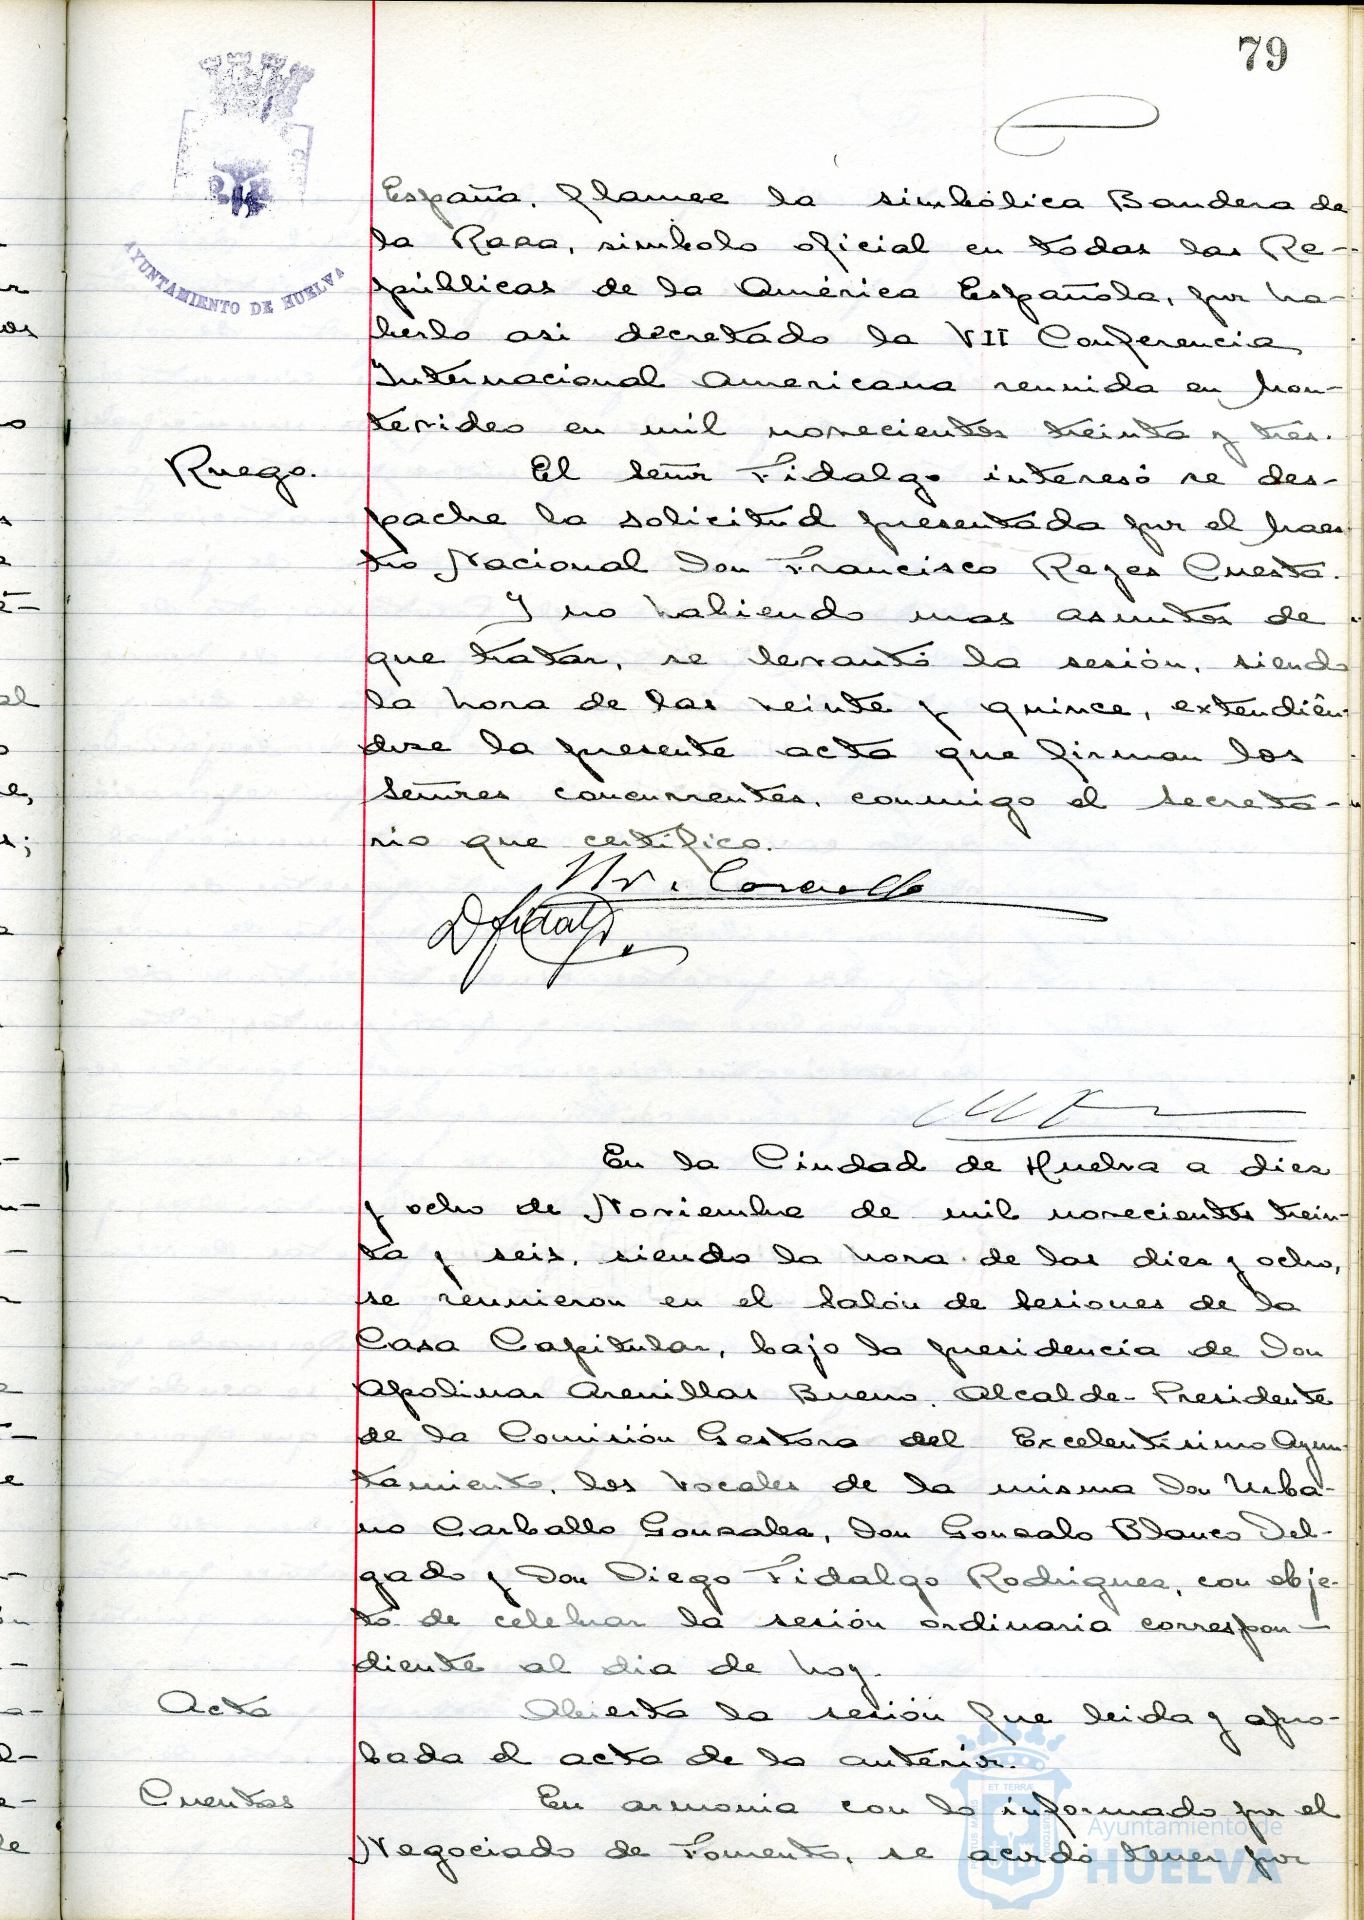 79
AYUNTAMIENTO DE HUELVA
España, flamee la simbólica Bandera de
la Raza, simbolo oficial en todas las Re-
públicas de la América Española, por ha-
berlo asi decretado la VII Conferencia
Internacional Americana reunida en Mon-
tevideo en mil novecientos treinta y tres.
Ruego.
El señor Fidalgo interesó se des-
pache la solicitud presentada por el Maes-
tro Nacional Don Francisco Reyes Cuesta.
Y no habiendo mas asuntos de
que tratar, se levantó la sesión, siendo
la hora de las veinte y quince, extendién-
dose la presente acta que firman los
Señores concurrentes, conmigo el Secreta-
rio que certifico.
En la Ciudad de Huelva a diez
y ocho de Noviembre de mil novecientos trein-
ta y seis, siendo la hora de las diez y ocho,
se reunieron en el Salón de Sesiones de la
Casa Capitular, bajo la presidencia de Don
Apolinar Arenillas Bueno, Alcalde-Presidente
de la Comisión Gestora del Excelentisimo Ayun-
tamiento, los Vocales de la misma Don Urba-
no Carballo Gonzalez, Don Gonzalo Blanco Del-
gado y Don Diego Fidalgo Rodriguez, con obje-
to de celebrar la sesión ordinaria correspon-
diente al dia de hoy.
Acta
Abierta la sesión fue leida y apro-
bada el acta de la anterior.
Cuentas
En armonia con lo informado por el
Negociado de Fomento, se acordó tener por
Ayuntamiento de
HUELVA